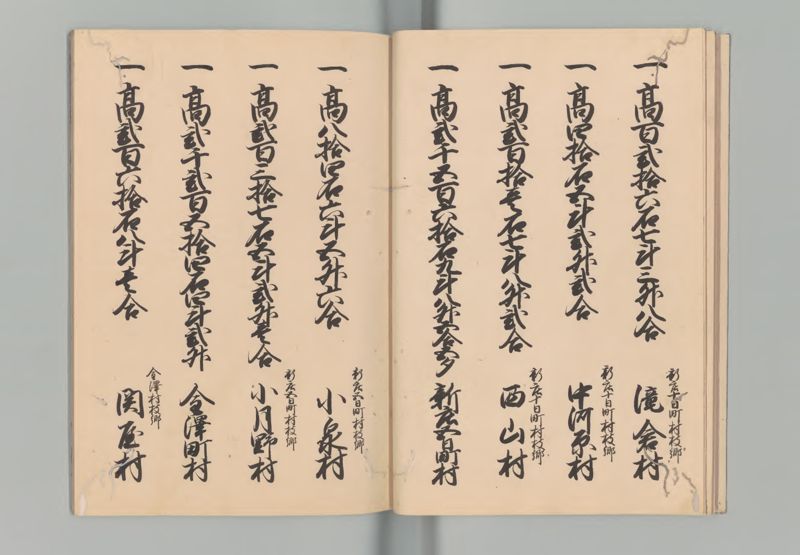 一 高百弐拾六石七斗三升八合
新庄十日町村枝郷
滝倉村
一 高四拾石五斗弐升弐合
新庄十日町村枝郷
中河原村
一 高弐百拾壱石七斗八升弐合
新庄十日町村枝郷
西山村
一 高弐千五百六拾石九斗八升六合五夕
新庄五日町村
一 高八拾四石六斗五升六合
新庄五日町村枝郷
小泉村
一 高弐百三拾七石五斗弐升壱合
新庄五日町村枝郷
小月野村
一 高弐千弐百五拾四石四斗弐升
金澤町村
一 高弐百六拾石八斗壱合
金澤村枝郷
関屋村